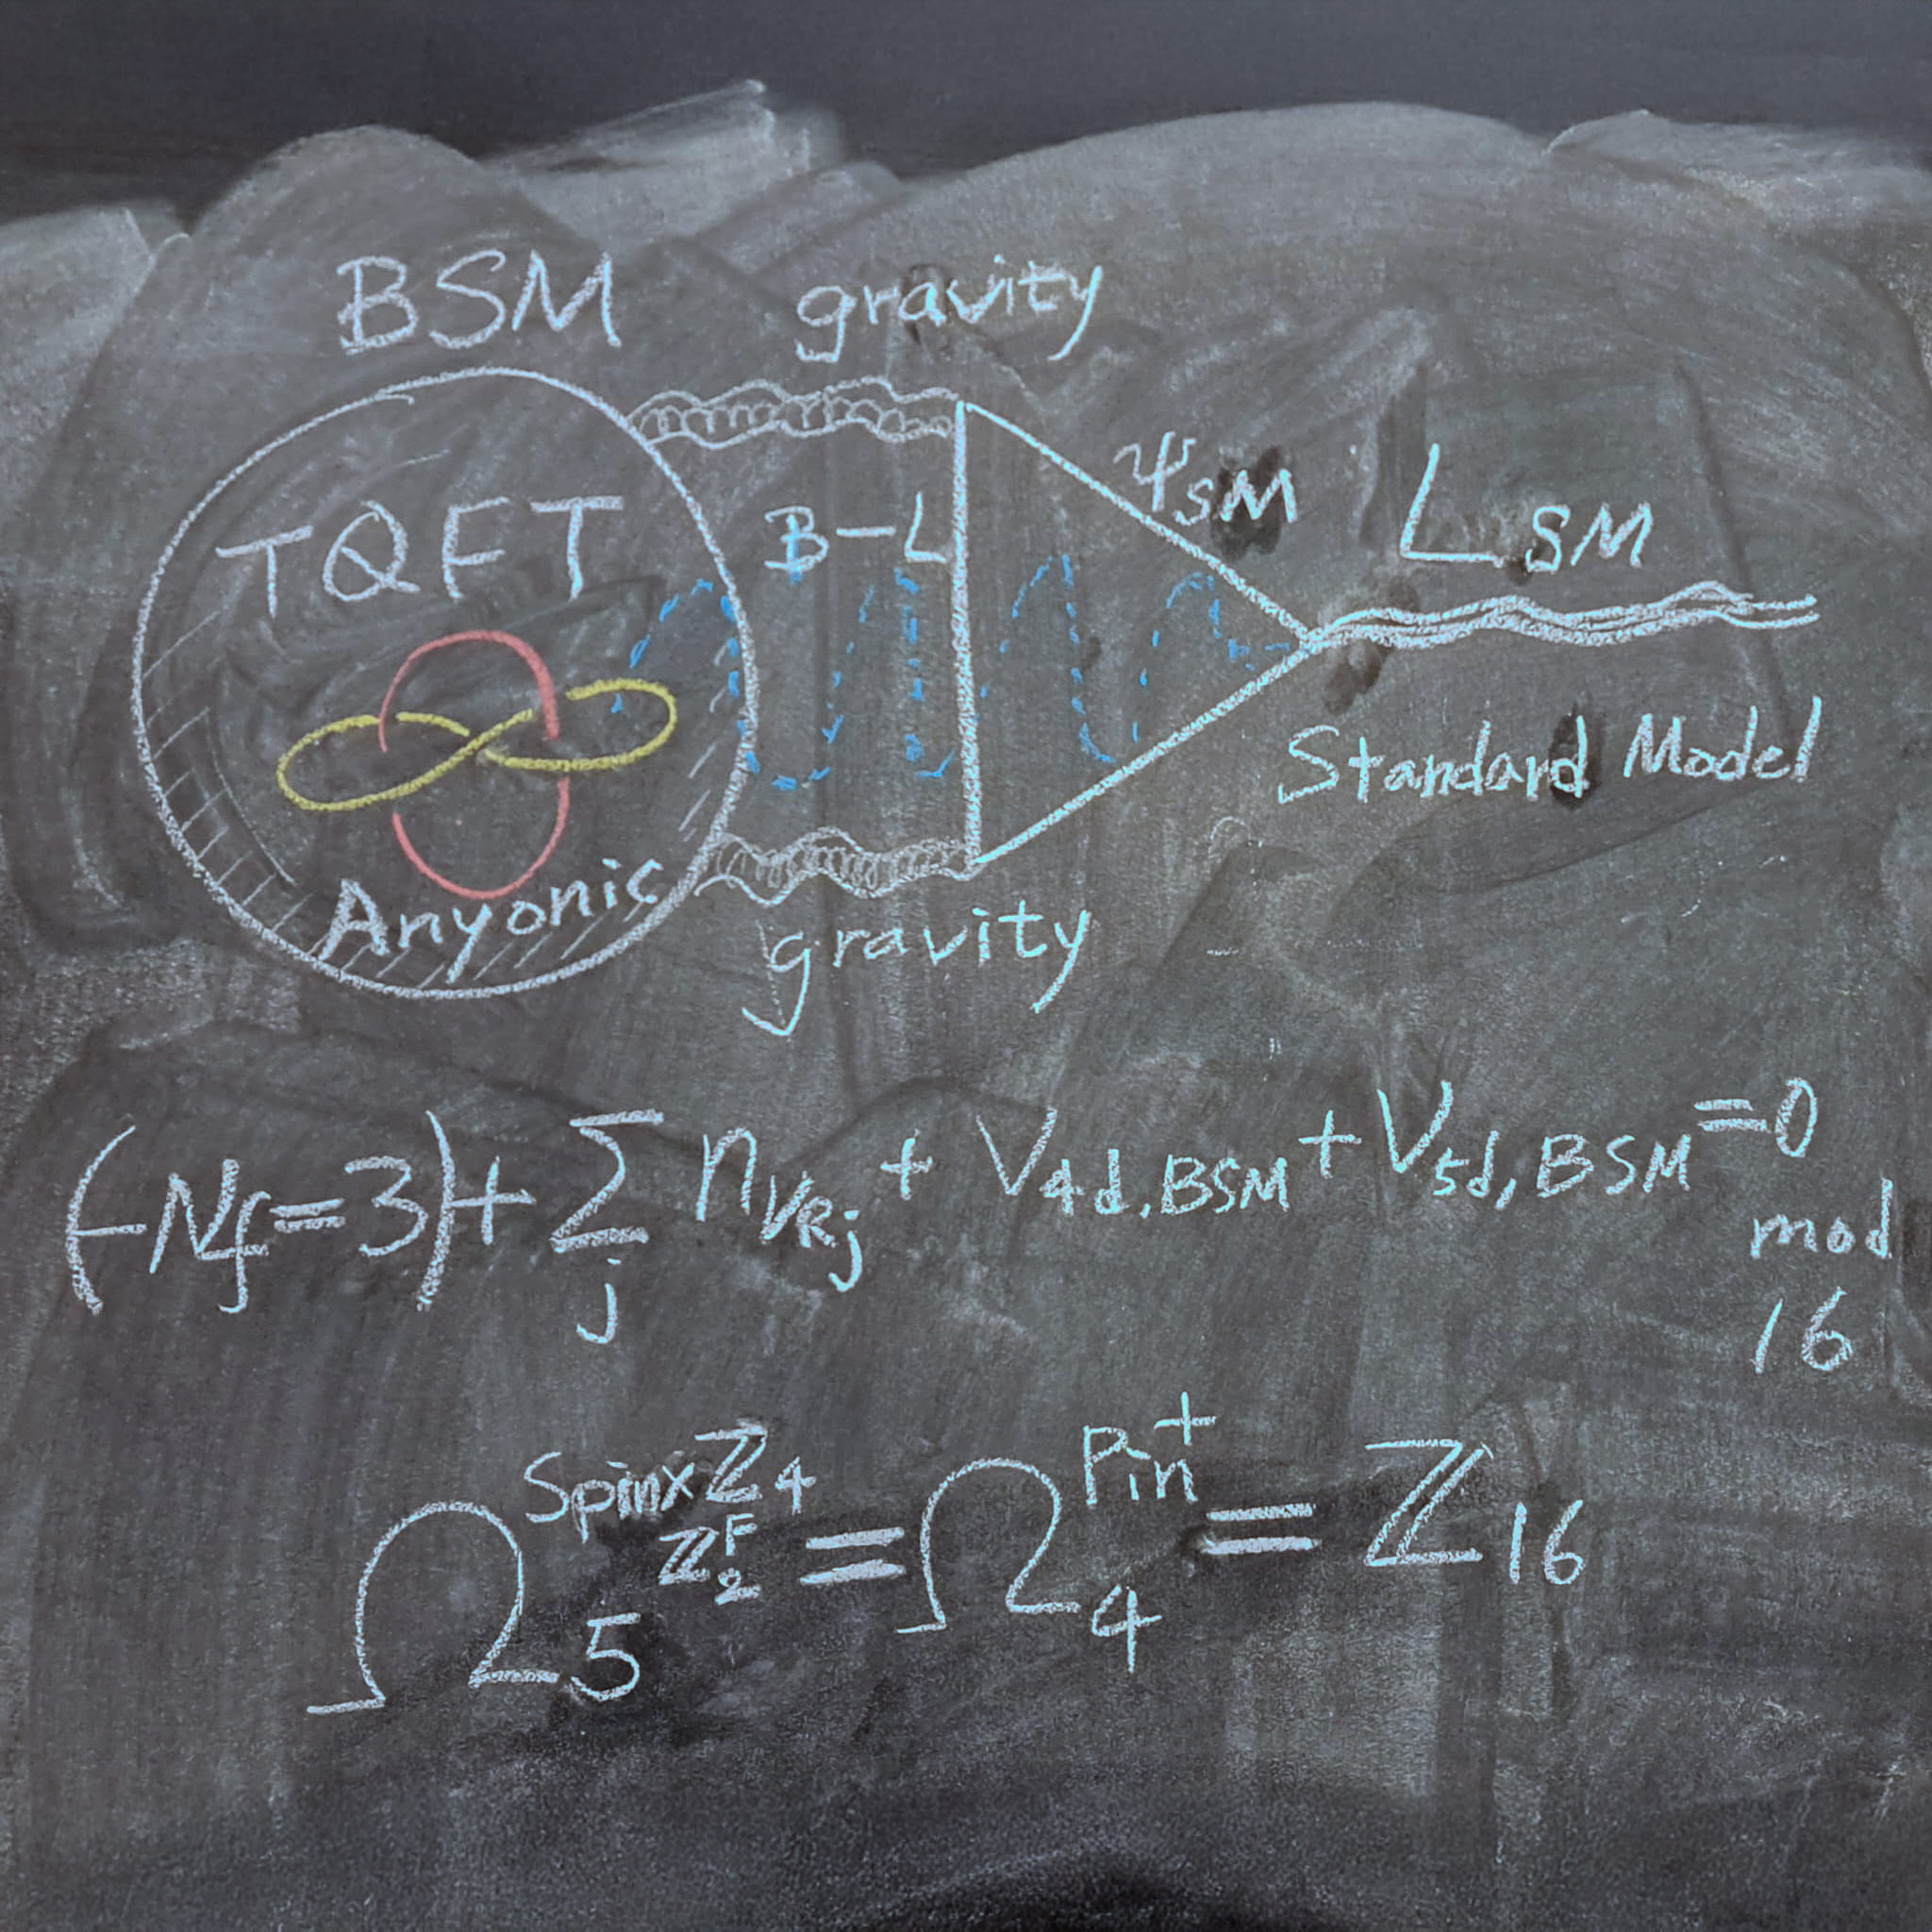 BSM gravity
TQFT B-L ψSM LSM
Standard Model
Anyonic
gravity
(-Nf=3)+∑j nνRj + ν4d,BSM + ν5d,BSM =0
mod
16
Ω5^Spin×Z2^F Z4 = Ω4^Pin+ = ℤ16